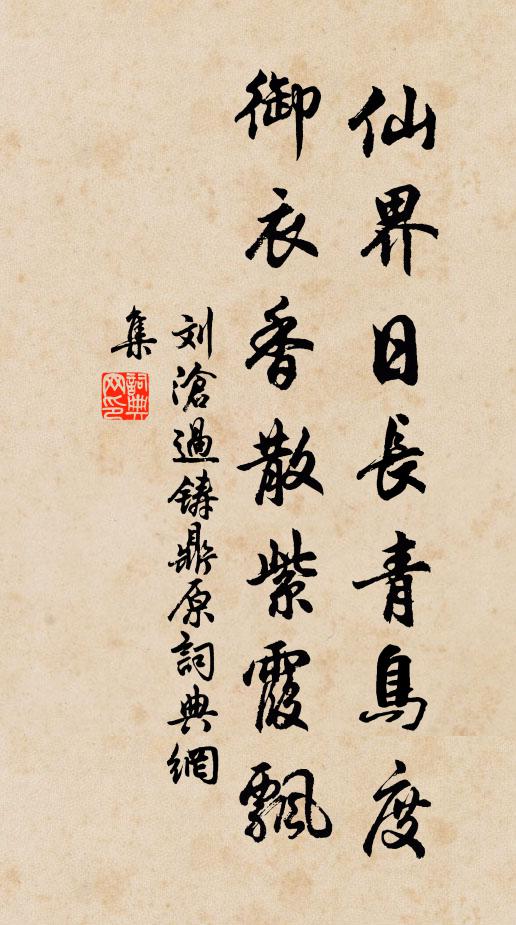 仙界日長青鳥度
御衣香散紫霞飄
刘滄過鑄鼎原詞典網
集
詞典
网印